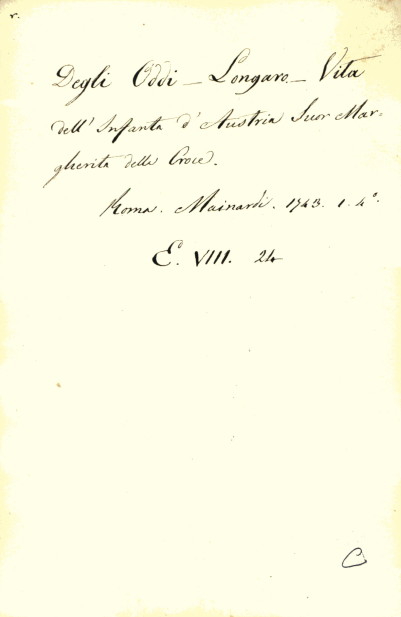 r.
Degli Oddi _ Longaro _ Vita
dell' Infanta d'Austria Suor Mar=
gherita della Croce.
Roma. Mainardi. 1743. 1. 4°.
E°. VIII. 24
C